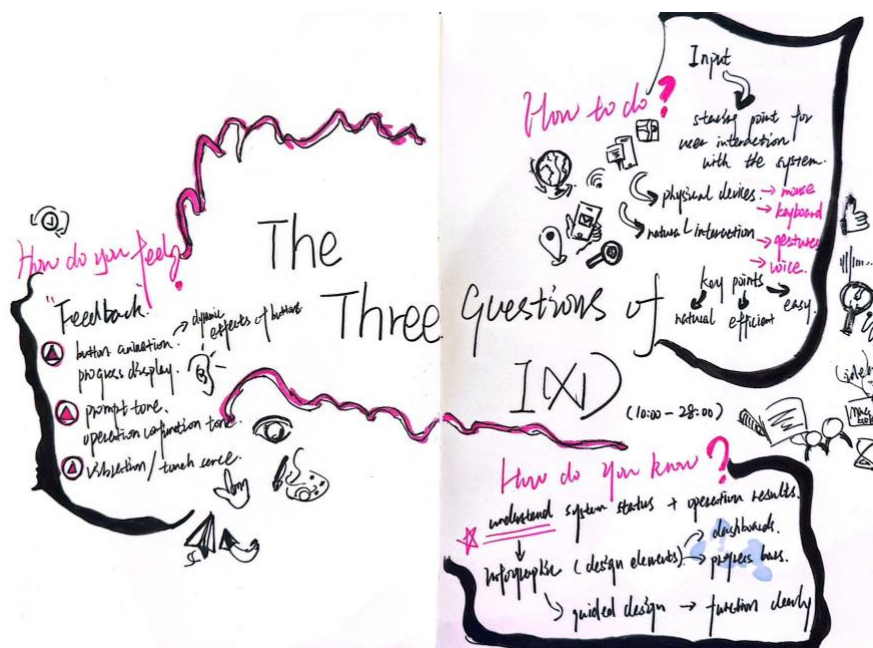 The
Three Questions of
IXD
(10:00-28:00)
How do you feel?
"Feedback"
button animation → dynamic effects of buttons
progress display.
prompt tone.
operation confirmation tone.
vibration / touch sense.
How to do?
Input
starting point for
user interaction
with the system.
physical devices → mouse
→ keyboard
natural interaction → gestures
→ voice.
key points
natural efficient easy.
How do you know?
understand system status + operation results.
infographic (design elements) → dashboards.
→ progress bars.
guided design → function clearly